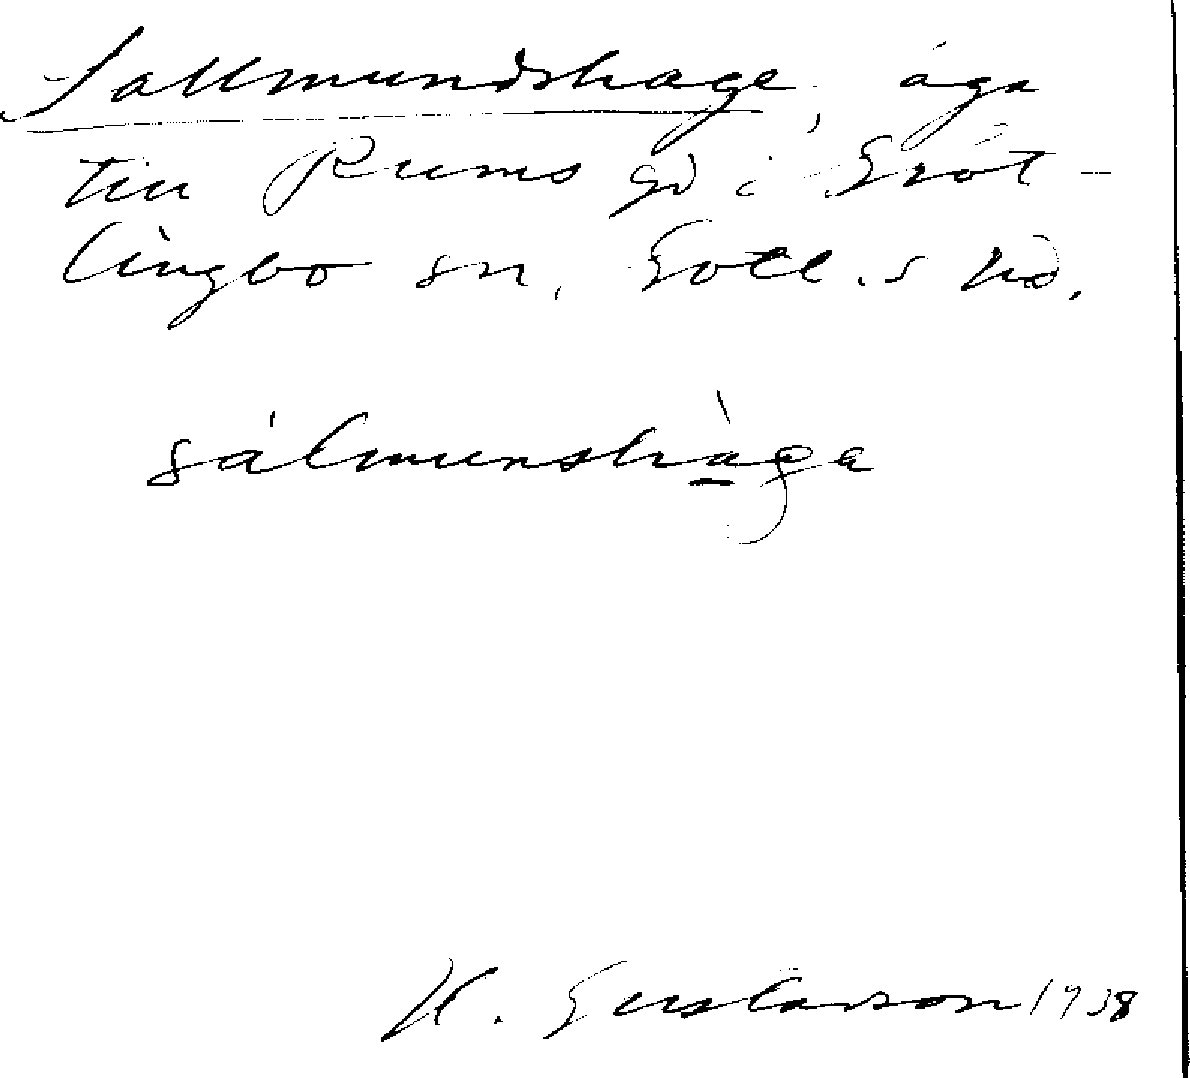 Sallmundshage, äga
till Rums gd i Gröt-
lingbo sn, Gotl.s hd.
sálmunshàga
H. Gustavson 1938